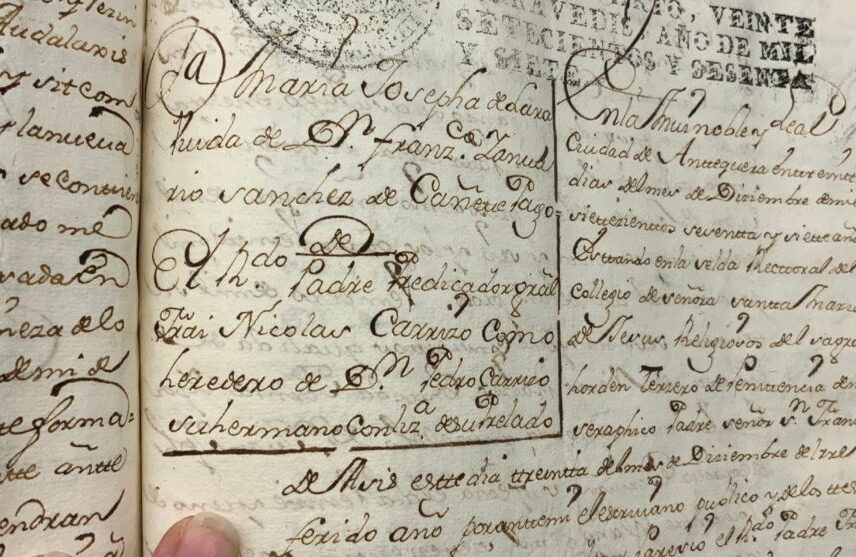 Audalaxis
y sit com
y lanueva
se contien
ado me
vada En
neza de lo
de mi de
te forma=
tte añtte
endran
RTO, VEINTE
RAVEDIS, AÑO DE MIL
SETECIENTOS Y SESENTA
Y SIETE
Dª Maria Josepha de Lara
Viuda de Dⁿ franzᶜᵒ Janua
rio sanchez de Cañete Pago=
De
El R.do Padre Predicador gral
Frai Nicolas Carrizo Como
heredero de Dⁿ Pedro Carrizo
su hermano Con lizª de su Prelado
En la Mui noble y Leal
Ciudad de Antequera en treinta
dias del mes de Diziembre de mil
settezientos sesentta y siette añ
Esttando en la selda Recttoral del
Collegio de señora santta Maria
de Jesus Religiosos del sagra
horden Terzero de Penitencia de n
seraphico Padre señor Sⁿ Fran
de Asis estte dia ttreintta del mes de Diziembre del rre
ferido año por antte mi el escrivano publico y de los ttes
parezio el R.do Padre Fr